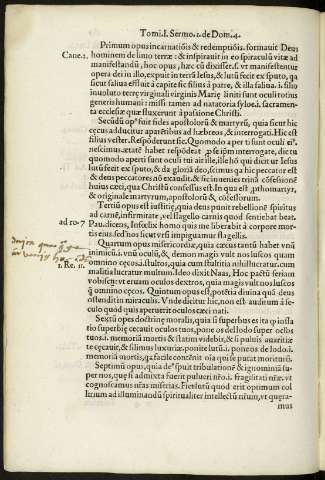 Tomi.I. Sermo.2. de Dom.4.
Primum opus incarnatiõis & redemptiõis. formauit Deus
Cane.2. hominem de limo terræ: & inspirauit in eo spiraculũ vitæ ad
manifestandũ, hoc opus, hæc cũ dixisset. f. vt manifestentur
opera dei in illo, expuit in terrã Iesus, & lutũ fecit ex sputo, qa
sicut saliua effluit à capite sic filius à patre, & illa saliua. i. filio
inuoluto terrę virginali virginis Marię liniti sunt oculi totius
generis humani: missi tamen ad natatoria syloę. i. sacramenta
ecclesiæ quæ fluxerunt à passione Christi.
Secũdũ opus fuit fides apostolorũ & martyrũ, quia sicut hic
cecus adducitur apartibus ad hæbreos, & interrogati. Hic est
filius vester. Respõderunt sic. Quomodo aper ti sunt oculi ei9.
nescimus. ætatẽ habet respõdeat pse ipsm interrogate, dic tu
quomodo aperti sunt oculi tui ait ille, ille hõ qui dicitur Iesus
lutũ fecit ex sputo, & da gloriã deo, scimus qa hic peccator est
& deus peccatores nõ exaudit. & sic inuenies ratiõ cõfessiõe
huius cæci, qua Christũ confessus est. In qua est pthomartyr,
& originale martyrum, apostolorũ, & cõfessorum.
Tertiũ opus est iustitię, quia deus punit rebellionẽ spiritus
ad carnẽ, infirmitate, vel flagello carnis quod sentiebat beat.
ad ro-7 Pau. dicens, Infœlix homo quis me liberabit à corpore mortis
eius, sed nos sicut vrsi impiguamur flagellis.
Quartum opus misericordiæ, quia cæcus tantũ habet vnũ
inimicũ. i. vnũ oculũ, & demon magis vult nos luscos quam
omnino cęcos. i. stultos, quia cum stultitia nihil luctatur. cum
1. Re. 11. malitia luctatur multum. Ideo dixit Naas, Hoc pactũ feriam
vobiscũ: vt eruam oculos dextros, quia magis vult nos luscos
q̃ omnino cęcos. Quintum opus est potẽtia diuina quã deus
ostendit in miraculis. Vnde dicitur hic, non est auditum à seculo
quod quis aperuerit oculos cæci nati.
Sextũ opes doctrinę moralis, quia si superbus es ita q ipsa
tio superbię cęcauit oculos tuos, pone os de lodo super oclos
tuos. i. memoriã mortis & statim videbis, & si puluis auaritiæ
te cęcauit, & silimus luxuriæ. ponite lutũ. i. pone os de lodo. i.
memoriã mortis, qa facile contẽnit oĩa qui se putat moriturũ.
Septimũ opus, quia de9 spuit tribulationẽ & ignominiã super
nos, que si admixta fuerit pulueri nr̃o. i. fragilitati nr̃æ. vt
cognoscamus nr̃as miserias. Fiet lutũ quod erit optimum collirium
ad illuminandũ spiritualiter intellectũ nr̃um, vt quæramus